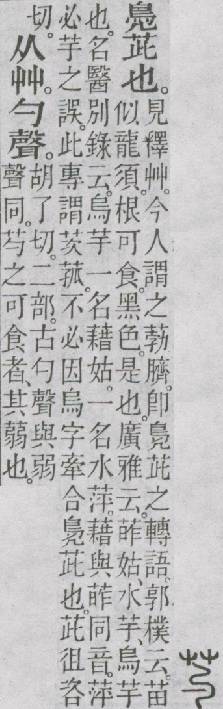 鳧茈也。
見釋艸。今人謂之勃臍。卽鳧茈之轉語。郭樸云。苗
似龍須。根可食。黑色。是也。廣雅云。葃姑、水芋、烏芋
也。名醫別錄云。烏芋一名藉姑。一名水萍。藉與葃同音。萍
必芋之誤。此專謂茨菰。不必因烏字牽合鳧茈也。茈徂咨
切。
从艸。勺聲。
胡了切。二部。古勺聲與弱
聲同。芍之可食者、其蒻也。